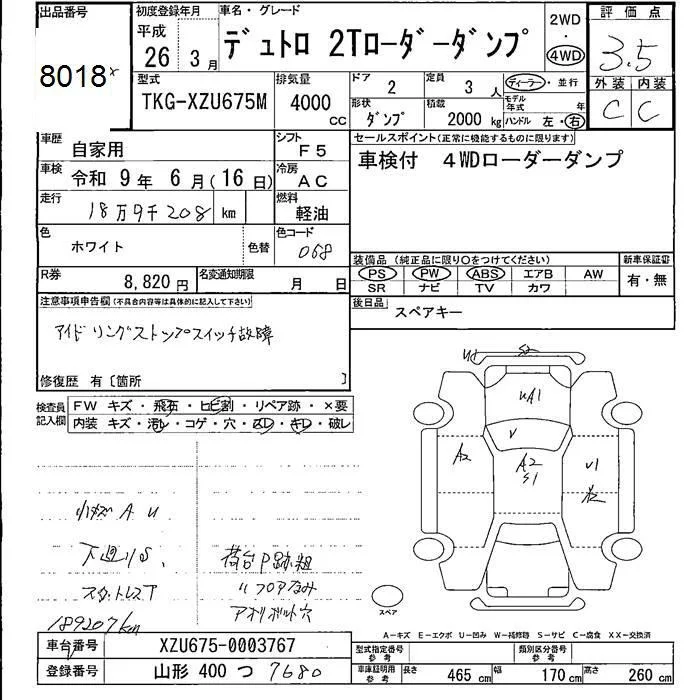 出品番号
8018
初度登録年月
平成
26 年 3 月
車名・グレード
デュトロ 2Tローダーダンプ
2WD
・
4WD
評価点
3.5
外装 内装
C C
型式
TKG-XZU675M
排気量
4000
CC
ドア
2
定員
3 人
ディーラー・並行
モデル年式 年
形状
ダンプ
積載
2000 kg
ハンドル 左・右
車歴
自家用
シフト
F5
車検
令和 9 年 6 月 (16 日)
冷房
AC
走行
18万9千208 km
燃料
軽油
色
ホワイト
色替
色コード
068
R券
8,820 円
名変通知期限
月 日
セールスポイント(正常に機能するものに限ります)
車検付 4WDローダーダンプ
装備品 (純正品に限り○をつけてください)
新車保証書
PS PW ABS エアB AW
SR ナビ TV カワ
有・無
後日品
スペアキー
注意事項申告欄(不具合内容等は具体的に記入して下さい)
アイドリングストップスイッチ故障
修復歴 有〔箇所 〕
検査員
記入欄
FW キズ・飛石・ヒビ割・リペア跡・×要
内装 キズ・汚レ・コゲ・穴・スレ・キレ・破レ
小キズ A U
下廻りS.
スタットレスT
189207km
荷台P跡、粗
〃フロアなみ
アオリボルト穴
UA1
V
A2
A2
S1
V1
スペア
A-キズ E-エクボ U-凹み W-補修跡 S-サビ C-腐食 XX-交換済
車台番号
XZU675-0003767
登録番号
山形 400 つ 7680
型式指定番号
参考
類別区分番号
参考
車庫証明用
参考
長さ 465 cm 幅 170 cm 高さ 260 cm